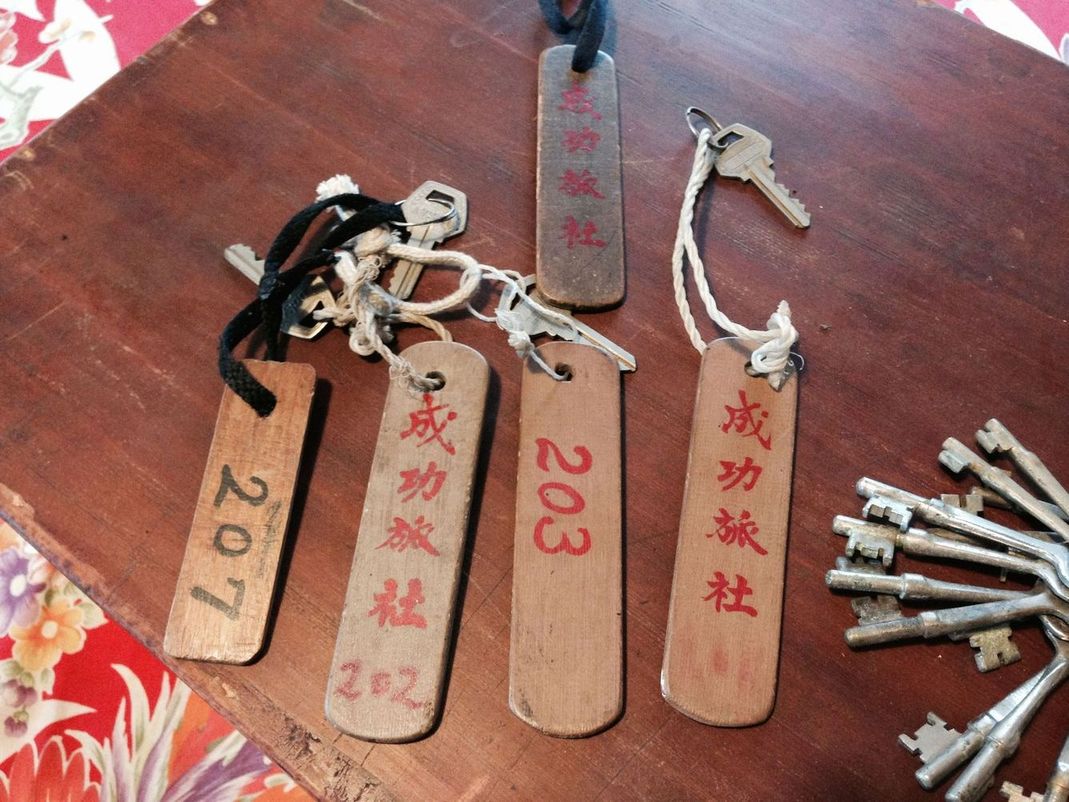 成功旅社
207
成功旅社
202
203
成功旅社